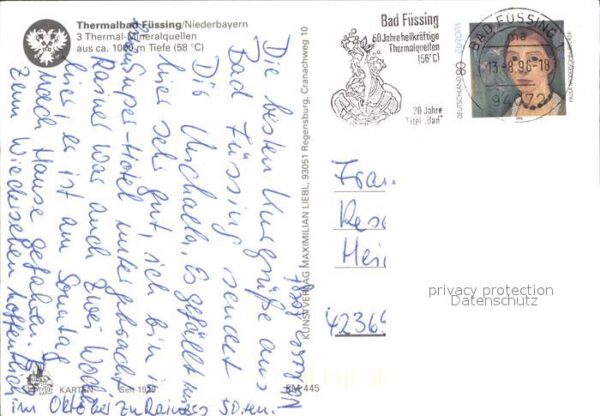 Thermalbad Füssing/Niederbayern
3 Thermal-Mineralquellen
aus ca. 1000 m Tiefe (58 °C)
Bad Füssing
60 Jahre heilkräftige
Thermalquellen
(56°C)
20 Jahre
Titel „Bad"
BAD FÜSSING 1
13.-8.96-18
94072
DEUTSCHLAND 80 EUROPA
Die besten Urlaubsgrüße aus
Bad Füssing sendet
Dir Michaela. Es gefällt mir
hier sehr gut, ich bin in
Super-Hotel untergebracht
Rainer war auch zwei Wochen
hier, er ist am Sonntag
nach Hause gefahren.
Zum Wiedersehen hoffentlich
im Oktober zu Rainers 50ten.
KUNSTVERLAG MAXIMILIAN LIEBL, 93051 Regensburg, Cranachweg 10
Frau
Hei
42369
privacy protection
Datenschutz
KARTEN Seit 1920
445